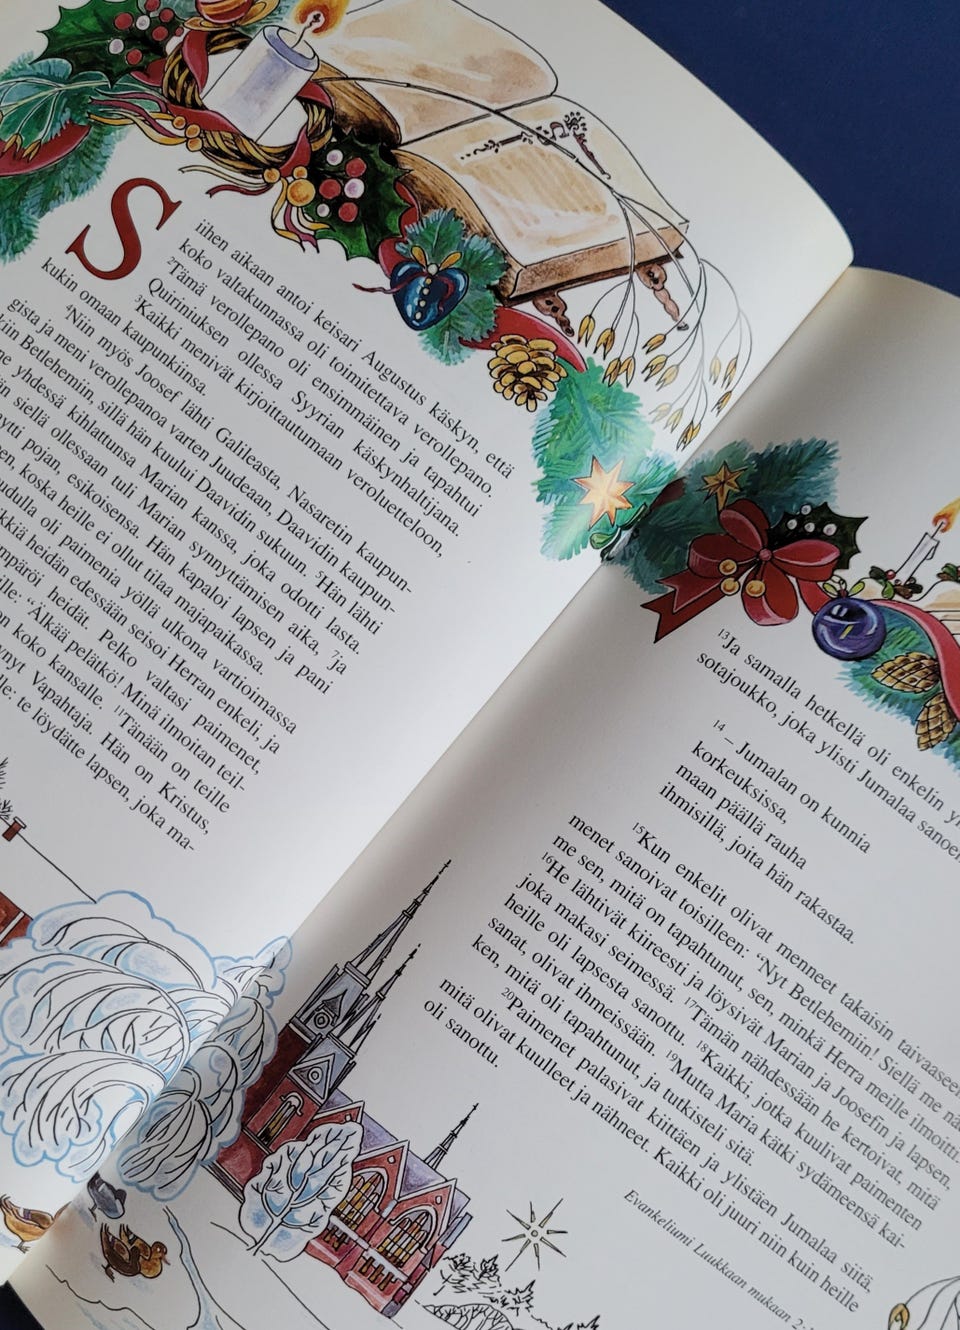 Siihen aikaan antoi keisari Augustus käskyn, että
koko valtakunnassa oli toimitettava verollepano.
²Tämä verollepano oli ensimmäinen ja tapahtui
Quiriniuksen ollessa Syyrian käskynhaltijana.
³Kaikki menivät kirjoittautumaan veroluetteloon,
kukin omaan kaupunkiinsa.
⁴Niin myös Joosef lähti Galileasta, Nasaretin kaupun-
gista ja meni verollepanoa varten Juudeaan, Daavidin kaupun-
Betlehemiin, sillä hän kuului Daavidin sukuun. ⁵Hän lähti
yhdessä kihlattunsa Marian kanssa, joka odotti lasta.
siellä ollessaan tuli Marian synnyttämisen aika, ⁷ja
pojan, esikoisensa. Hän kapaloi lapsen ja pani
koska heille ei ollut tilaa majapaikassa.
oli paimenia yöllä ulkona vartioimassa
heidän edessään seisoi Herran enkeli, ja
heidät. Pelko valtasi paimenet,
“Älkää pelätkö! Minä ilmoitan teil-
koko kansalle. ¹¹Tänään on teille
Vapahtaja. Hän on Kristus,
te löydätte lapsen, joka ma-
¹³Ja samalla hetkellä oli enkelin
sotajoukko, joka ylisti Jumalaa
¹⁴ – Jumalan on kunnia
korkeuksissa,
maan päällä rauha
ihmisillä, joita hän rakastaa.
¹⁵Kun enkelit olivat menneet takaisin taivaaseen,
menet sanoivat toisilleen: “Nyt Betlehemiin! Siellä me
me sen, mitä on tapahtunut, sen, minkä Herra meille ilmoitti.
¹⁶He lähtivät kiireesti ja löysivät Marian ja Joosefin ja lapsen,
joka makasi seimessä. ¹⁷Tämän nähdessään he kertoivat, mitä
heille oli lapsesta sanottu. ¹⁸Kaikki, jotka kuulivat paimenten
sanat, olivat ihmeissään. ¹⁹Mutta Maria kätki sydämeensä kai-
ken, mitä oli tapahtunut, ja tutkisteli sitä.
²⁰Paimenet palasivat kiittäen ja ylistäen Jumalaa siitä,
mitä olivat kuulleet ja nähneet. Kaikki oli juuri niin kuin heille
oli sanottu.
Evankeliumi Luukkaan mukaan 2: